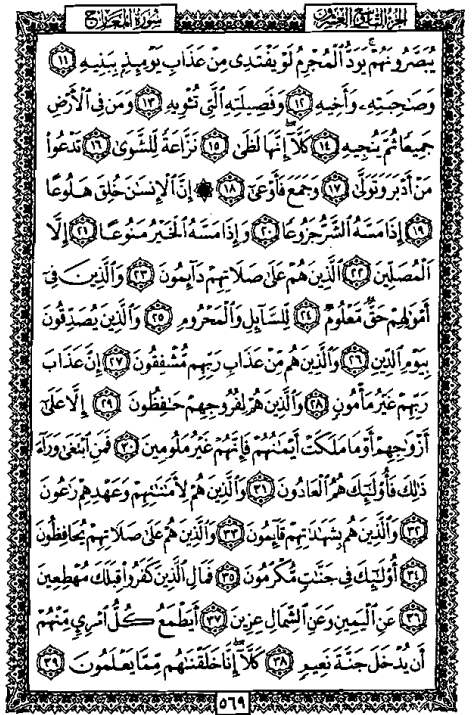 الجُزْءُ التَّاسِعُ وَالعِشْرُونَ
سُورَةُ المَعَارِجِ
يُبَصَّرُونَهُمْ ۚ يَوَدُّ ٱلْمُجْرِمُ لَوْ يَفْتَدِى مِنْ عَذَابِ يَوْمِئِذٍۭ بِبَنِيهِ ١١
وَصَٰحِبَتِهِۦ وَأَخِيهِ ١٢ وَفَصِيلَتِهِ ٱلَّتِى تُـْٔوِيهِ ١٣ وَمَن فِى ٱلْأَرْضِ
جَمِيعًا ثُمَّ يُنجِيهِ ١٤ كَلَّآ ۖ إِنَّهَا لَظَىٰ ١٥ نَزَّاعَةً لِّلشَّوَىٰ ١٦ تَدْعُوا۟
مَنْ أَدْبَرَ وَتَوَلَّىٰ ١٧ وَجَمَعَ فَأَوْعَىٰٓ ١٨ ۞ إِنَّ ٱلْإِنسَٰنَ خُلِقَ هَلُوعًا
١٩ إِذَا مَسَّهُ ٱلشَّرُّ جَزُوعًا ٢٠ وَإِذَا مَسَّهُ ٱلْخَيْرُ مَنُوعًا ٢١ إِلَّا
ٱلْمُصَلِّينَ ٢٢ ٱلَّذِينَ هُمْ عَلَىٰ صَلَاتِهِمْ دَآئِمُونَ ٢٣ وَٱلَّذِينَ فِىٓ
أَمْوَٰلِهِمْ حَقٌّ مَّعْلُومٌ ٢٤ لِّلسَّآئِلِ وَٱلْمَحْرُومِ ٢٥ وَٱلَّذِينَ يُصَدِّقُونَ
بِيَوْمِ ٱلدِّينِ ٢٦ وَٱلَّذِينَ هُم مِّنْ عَذَابِ رَبِّهِم مُّشْفِقُونَ ٢٧ إِنَّ عَذَابَ
رَبِّهِمْ غَيْرُ مَأْمُونٍ ٢٨ وَٱلَّذِينَ هُمْ لِفُرُوجِهِمْ حَٰفِظُونَ ٢٩ إِلَّا عَلَىٰٓ
أَزْوَٰجِهِمْ أَوْ مَا مَلَكَتْ أَيْمَٰنُهُمْ فَإِنَّهُمْ غَيْرُ مَلُومِينَ ٣٠ فَمَنِ ٱبْتَغَىٰ وَرَآءَ
ذَٰلِكَ فَأُو۟لَٰٓئِكَ هُمُ ٱلْعَادُونَ ٣١ وَٱلَّذِينَ هُمْ لِأَمَٰنَٰتِهِمْ وَعَهْدِهِمْ رَٰعُونَ
٣٢ وَٱلَّذِينَ هُم بِشَهَٰدَٰتِهِمْ قَآئِمُونَ ٣٣ وَٱلَّذِينَ هُمْ عَلَىٰ صَلَاتِهِمْ يُحَافِظُونَ
٣٤ أُو۟لَٰٓئِكَ فِى جَنَّٰتٍ مُّكْرَمُونَ ٣٥ فَمَالِ ٱلَّذِينَ كَفَرُوا۟ قِبَلَكَ مُهْطِعِينَ
٣٦ عَنِ ٱلْيَمِينِ وَعَنِ ٱلشِّمَالِ عِزِينَ ٣٧ أَيَطْمَعُ كُلُّ ٱمْرِئٍ مِّنْهُمْ
أَن يُدْخَلَ جَنَّةَ نَعِيمٍ ٣٨ كَلَّآ ۖ إِنَّا خَلَقْنَٰهُم مِّمَّا يَعْلَمُونَ ٣٩
٥٦٩